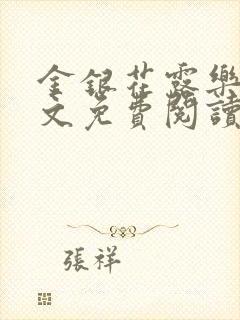 金銀花露樂
文免費閱讀
張祥